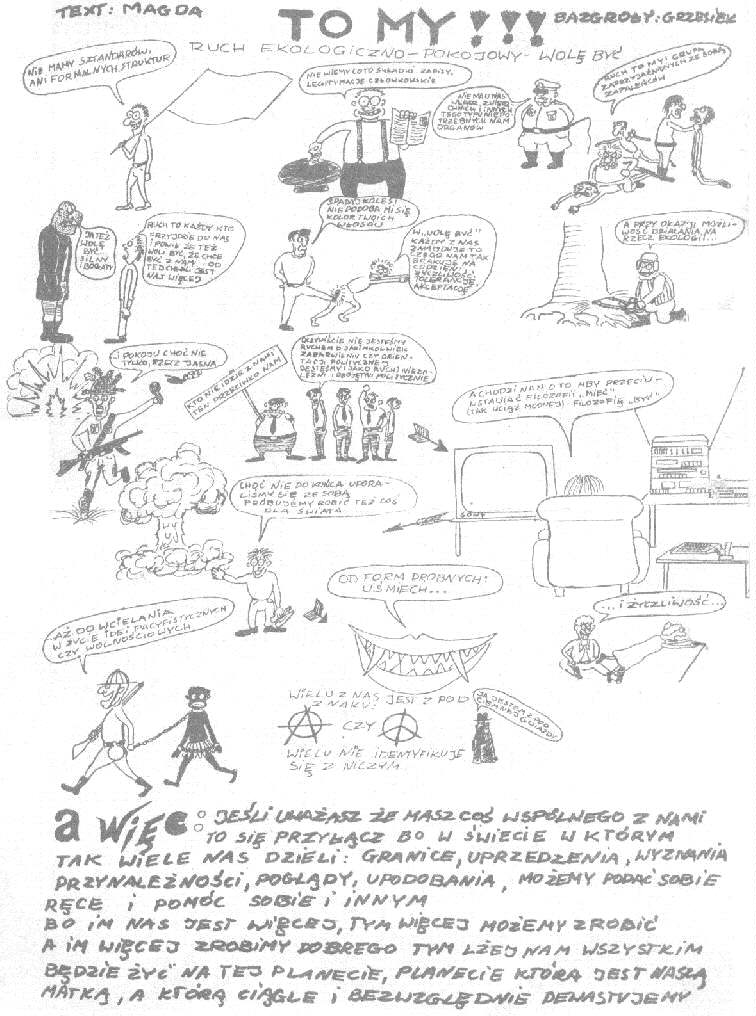 TEXT: MAGDA
TO MY!!!
BAZGROŁY: GRZESIEK
RUCH EKOLOGICZNO-POKOJOWY-WOLĘ BYĆ
NIE MAMY SZTANDARÓW,
ANI FORMALNYCH STRUKTUR
NIE WIEMY CO TO SKŁADKI, ZAPISY,
LEGITYMACJE CZŁONKOWSKIE
NIE MA U NAS
WŁADZ, ZWIERZ-
CHNICH I INNYCH
TEGO TYPU NIE PO-
TRZEBNYCH NAM
ORGANÓW
RUCH TO MY! GRUPA
ZAPRZYJAŹNIONYCH ZE SOBĄ
ZAPALEŃCÓW
JA TEŻ
WOLĘ
BYĆ
SILNY
I BOGATY
RUCH TO KAŻDY KTO
PRZYJDZIE DO NAS
I POWIE ŻE TEŻ
WOLI BYĆ, ŻE CHCE
BYĆ Z NAMI - OD
TEJ CHWILI JEST
NAS WIĘCEJ
SPADAJ KOLEŚ!
NIE PODOBA MI SIĘ
KOLOR TWOICH
WŁOSÓW
W "WOLĘ BYĆ"
KAŻDY Z NAS
ZNAJDUJE TO
CZEGO NAM TAK
BRAKUJE NA
CODZIEŃ:
ŻYCZLIWOŚĆ
TOLERANCJĘ,
AKCEPTACJĘ
A PRZY OKAZJI MOŻLI-
WOŚĆ DZIAŁANIA NA
RZECZ EKOLOGII...
I POKOJU CHOĆ NIE
TYLKO, RZECZ JASNA
KTO NIE IDZIE Z NAMI
TEN PRZECIWKO NAM
OCZYWIŚCIE NIE JESTEŚMY
RUCHEM O JAKIMKOLWIEK
ZABARWIENIU CZY ORIEN-
TACJI POLITYCZNEJ
JESTEŚMY (JAKO RUCH) NIEZA-
LEŻNI I OBOJĘTNI POLITYCZNIE
A CHODZI NAM O TO ABY PRZECIW-
STAWIAĆ FILOZOFII "MIEĆ"
(TAK WCIĄŻ MODNEJ) - FILOZOFIĘ "BYĆ"
SONY
CHOĆ NIE DO KOŃCA UPORA-
LIŚMY SIĘ ZE SOBĄ
PRÓBUJEMY ROBIĆ TEŻ COŚ
DLA ŚWIATA
OD FORM DROBNYCH:
UŚMIECH...
...I ŻYCZLIWOŚĆ...
AŻ DO WCIELANIA
W ŻYCIE IDEI PACYFISTYCZNYCH
CZY WOLNOŚCIOWYCH
WIELU Z NAS JEST Z POD
ZNAKU:
CZY
WIELU NIE IDENTYFIKUJE
SIĘ Z NICZYM
JA JESTEM Z POD
CIEMNEJ GWIAZDY
a WIĘC: JEŚLI UWAŻASZ ŻE MASZ COŚ WSPÓLNEGO Z NAMI
TO SIĘ PRZYŁĄCZ BO W ŚWIECIE W KTÓRYM
TAK WIELE NAS DZIELI: GRANICE, UPRZEDZENIA, WYZNANIA
PRZYNALEŻNOŚCI, POGLĄDY, UPODOBANIA, MOŻEMY PODAĆ SOBIE
RĘCE I POMÓC SOBIE I INNYM
BO IM NAS JEST WIĘCEJ, TYM WIĘCEJ MOŻEMY ZROBIĆ
A IM WIĘCEJ ZROBIMY DOBREGO TYM LŻEJ NAM WSZYSTKIM
BĘDZIE ŻYĆ NA TEJ PLANECIE, PLANECIE KTÓRA JEST NASZĄ
MATKĄ, A KTÓRĄ CIĄGLE I BEZWZGLĘDNIE DEWASTUJEMY